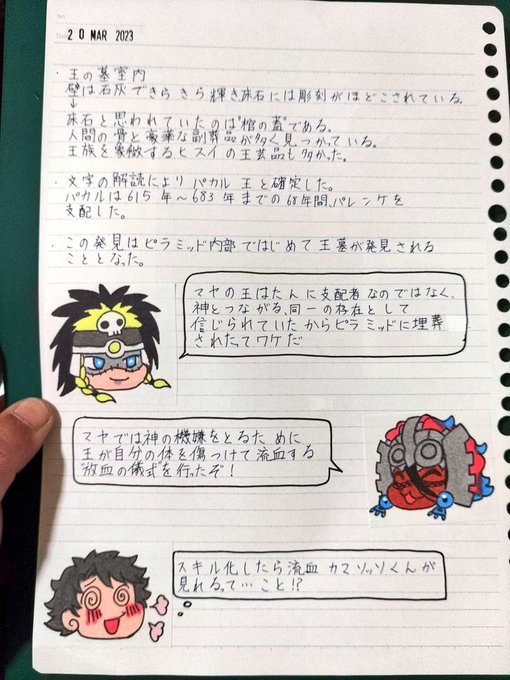 No.
Date
20 MAR 2023
・王の墓室内
壁は石灰できらきら輝き床石には彫刻がほどこされている。
↓
床石と思われていたのは"棺の蓋"である。
人間の骨と豪華な副葬品が多く見つかっている。
王族を象徴するヒスイの工芸品も多かった。
・文字の解読によりパカル王と確定した。
パカルは615年～683年までの68年間、パレンケを
支配した。
・この発見はピラミッド内部ではじめて王墓が発見される
こととなった。
マヤの王はたんに支配者なのではなく、
神とつながる、同一の存在として
信じられていたからピラミッドに埋葬
されたってワケだ
マヤでは神の機嫌をとるために
王が自分の体を傷つけて流血する
"放血の儀式"を行ったぞ!
スキル化したら流血カマソッソくんが
見れるって…こと!?